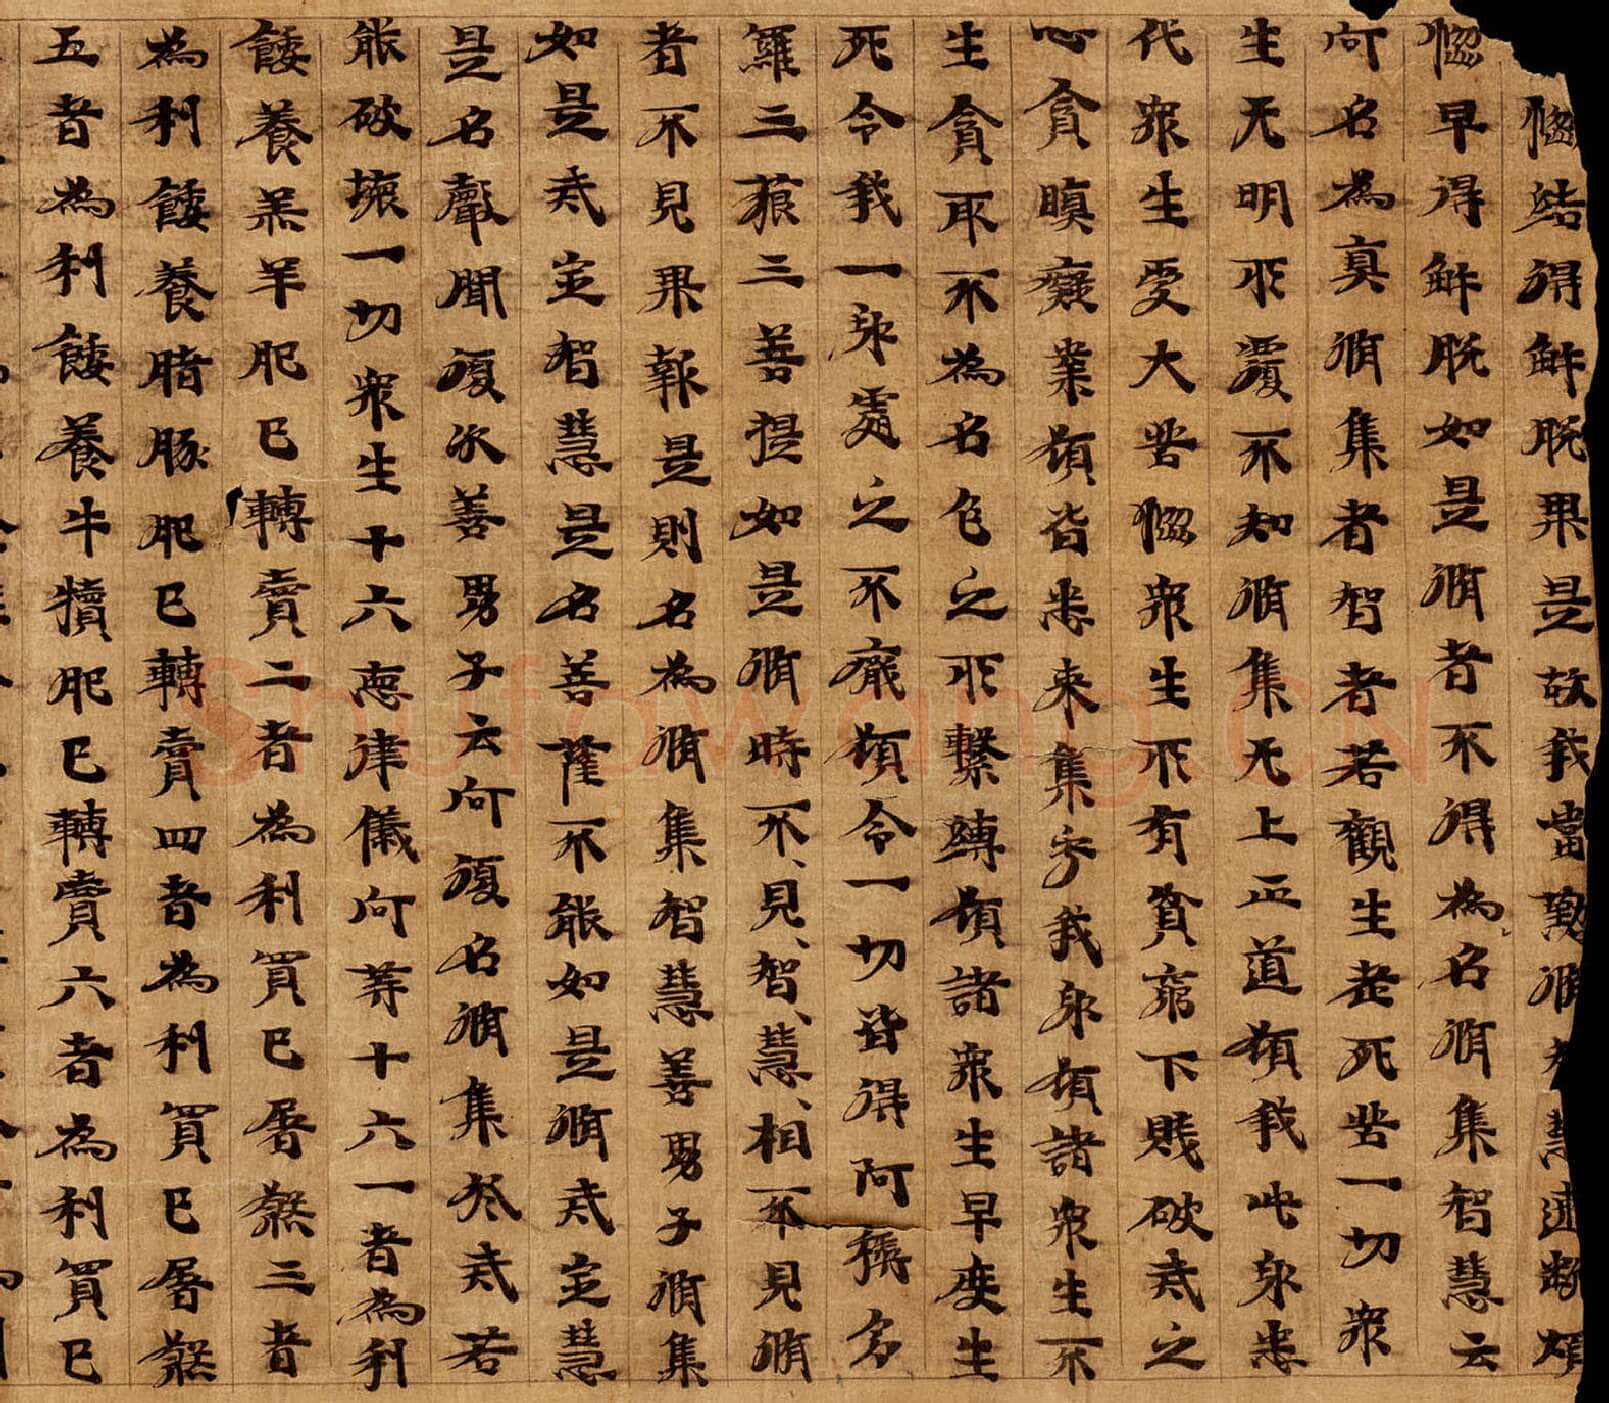 惱結得解脫果是故我當勤脩智慧速斷煩
惱早得解脫如是脩者不得為名脩集智慧云
何名為真脩集者智者若觀生老死苦一切眾
生无明所覆不知脩集无上正道願我此身悉
代眾生受大苦惱眾生所有貧窮下賤破戒之
心貪瞋癡業願皆悉来集于我身願諸眾生不
生貪取不為名色之所繫縛願諸眾生早度生
死令我一身處之不癈願令一切皆得阿耨多
羅三藐三菩提如是脩時不見智慧相不見脩
者不見果報是則名為脩集智慧善男子脩集
如是戒定智慧是名菩薩不能如是脩戒定慧
是名聲聞復次善男子云何復名脩集於戒若
能破壞一切眾生十六惡律儀何等十六一者為利
餧養羔羊肥已轉賣二者為利買已屠煞三者
為利餧養猪豚肥已轉賣四者為利買已屠煞
五者為利餧養牛犢肥已轉賣六者為利買已
shufawang.cn